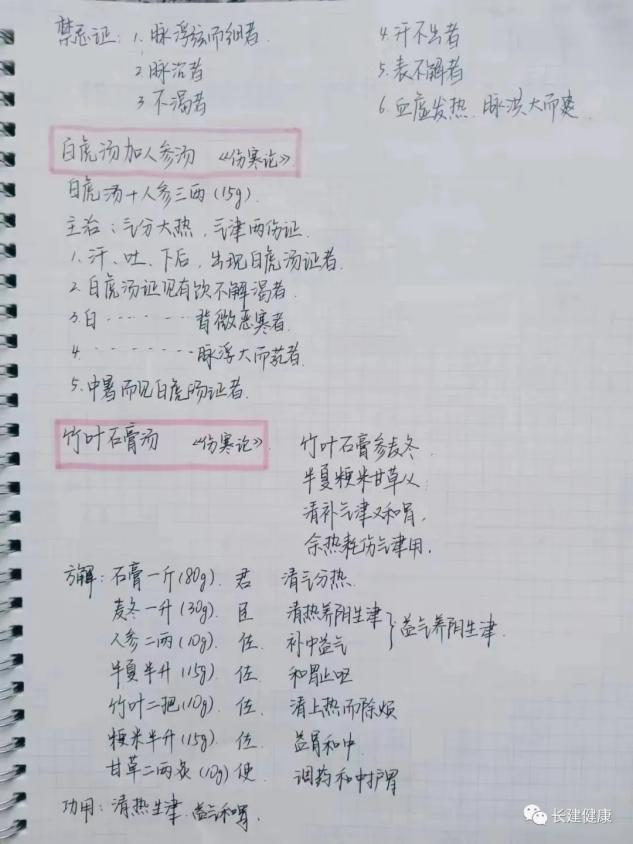 禁忌证：1. 脉浮弦而细者
2 脉沉者
3 不渴者
4. 汗不出者
5. 表不解者
6. 血虚发热、脉洪大而
白虎汤加人参汤 《伤寒论》
白虎汤+人参三两(15g).
主治：气分大热，气津两伤证.
1. 汗、吐、下后，出现白虎汤证者.
2. 白虎汤证见有饮不解渴者.
3. 白········背微恶寒者.
4. ········脉浮大而芤者.
5. 中暑而见白虎汤证者.
竹叶石膏汤 《伤寒论》.
竹叶石膏参麦冬.
半夏粳米甘草从
清补气津又和胃,
余热耗伤气津用.
方解：石膏一斤(80g). 君 清气分热.
麦冬一升(30g). 臣 清热养阴生津
人参二两(10g). 佐. 补中益气
益气养阴生津.
半夏半升(15g). 佐. 和胃止呕
竹叶二把(10g). 佐. 清上热而除烦
粳米半升(15g). 佐. 益胃和中.
甘草二两炙(10g) 使 调药和中护胃
功用：清热生津、益气和胃.
长建健康